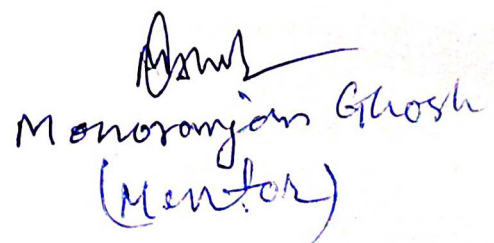 Monoranjan Ghosh
(Mentor)